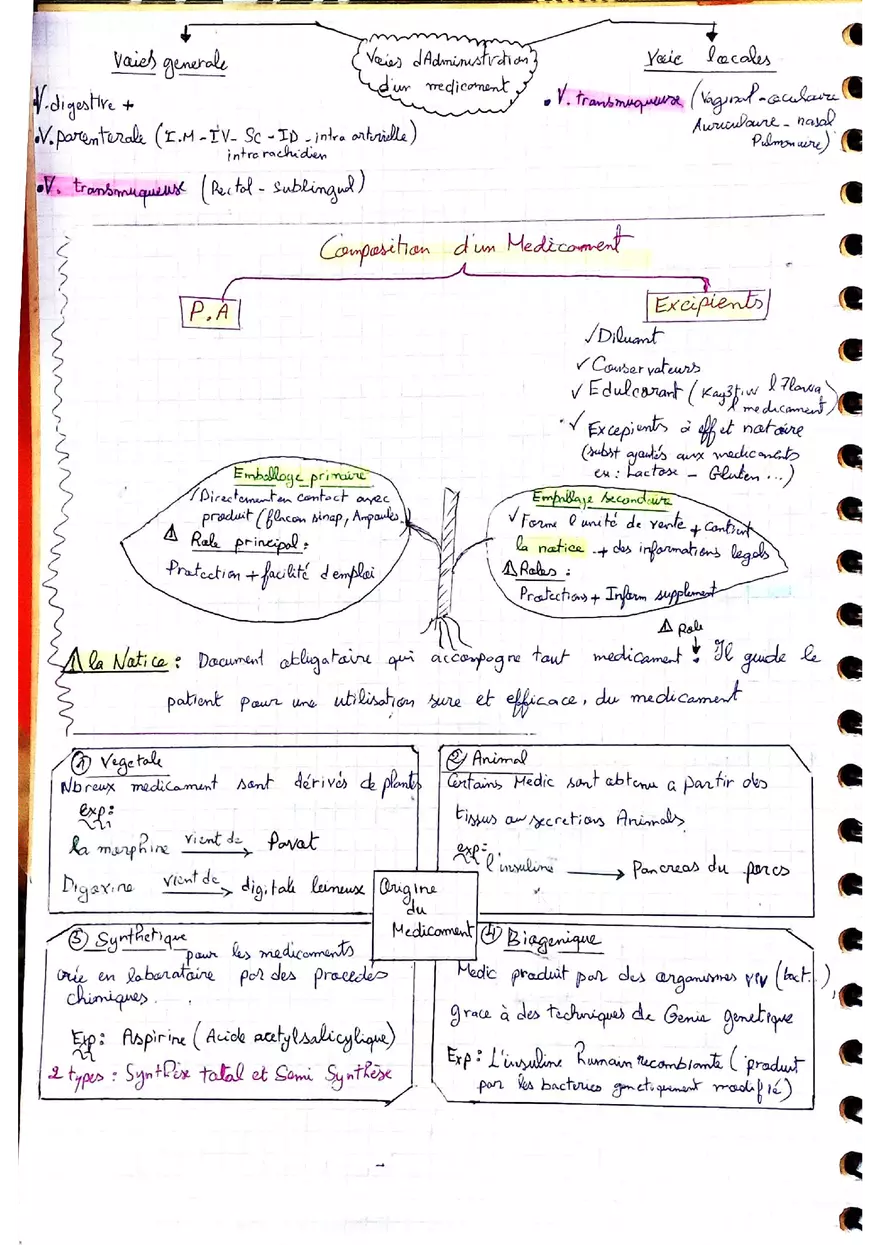 Voies d'Administration
d'un medicament
Voies generale
V. digestive +
V. parenterale (I.M - IV - SC - ID - intra arterielle)
intra rachidien
V. transmuqueuse (Rectal - Sublingual)
Voie locales
V. transmuqueuse (Vaginal - oculaire
Auriculaire - nasal
Pulmonaire)
Composition d'un Medicament
P.A
Excipients
Diluant
Conservateurs
Edulcorant (Kay3tiw l 7lawa
l medicament)
Excepients à effet notoire
(subst ajoutés aux medicaments
ex : Lactose - Gluten ...)
Emballage primaire
Directement en contact avec
produit (flacon sirop, Ampoules)
Role principal :
Protection + facilité d'emploi
Emballage secondaire
Forme l'unité de vente + contient
la notice + des informations legals
Roles :
Protections + Inform supplement
Role
la Notice : Document obligatoire qui accompagne tout medicament : Il guide le
patient pour une utilisation sure et efficace, du medicament
Origine
du
Medicament
① Vegetale
Nbreux medicament sont dérivés de plants
exp :
la morphine vient de Pavot
Digoxine vient de digitale leineux
② Animal
Certains Medic sont obtenu a partir des
tissus ou secretions Animals
exp :
l'insuline Pancreas du porcs
③ Synthetique
pour les medicaments
crée en laboratoire par des procedés
chimiques.
Exp : Aspirine (Acide acetylsalicylique)
2 types : Synthèse total et Semi Synthèse
④ Biogenique
Medic produit par des organismes viv (bact..)
grace à des techniques de Genie genetique
Exp : L'insuline humain recombiante (produit
par les bacteries genetiquement modifié)